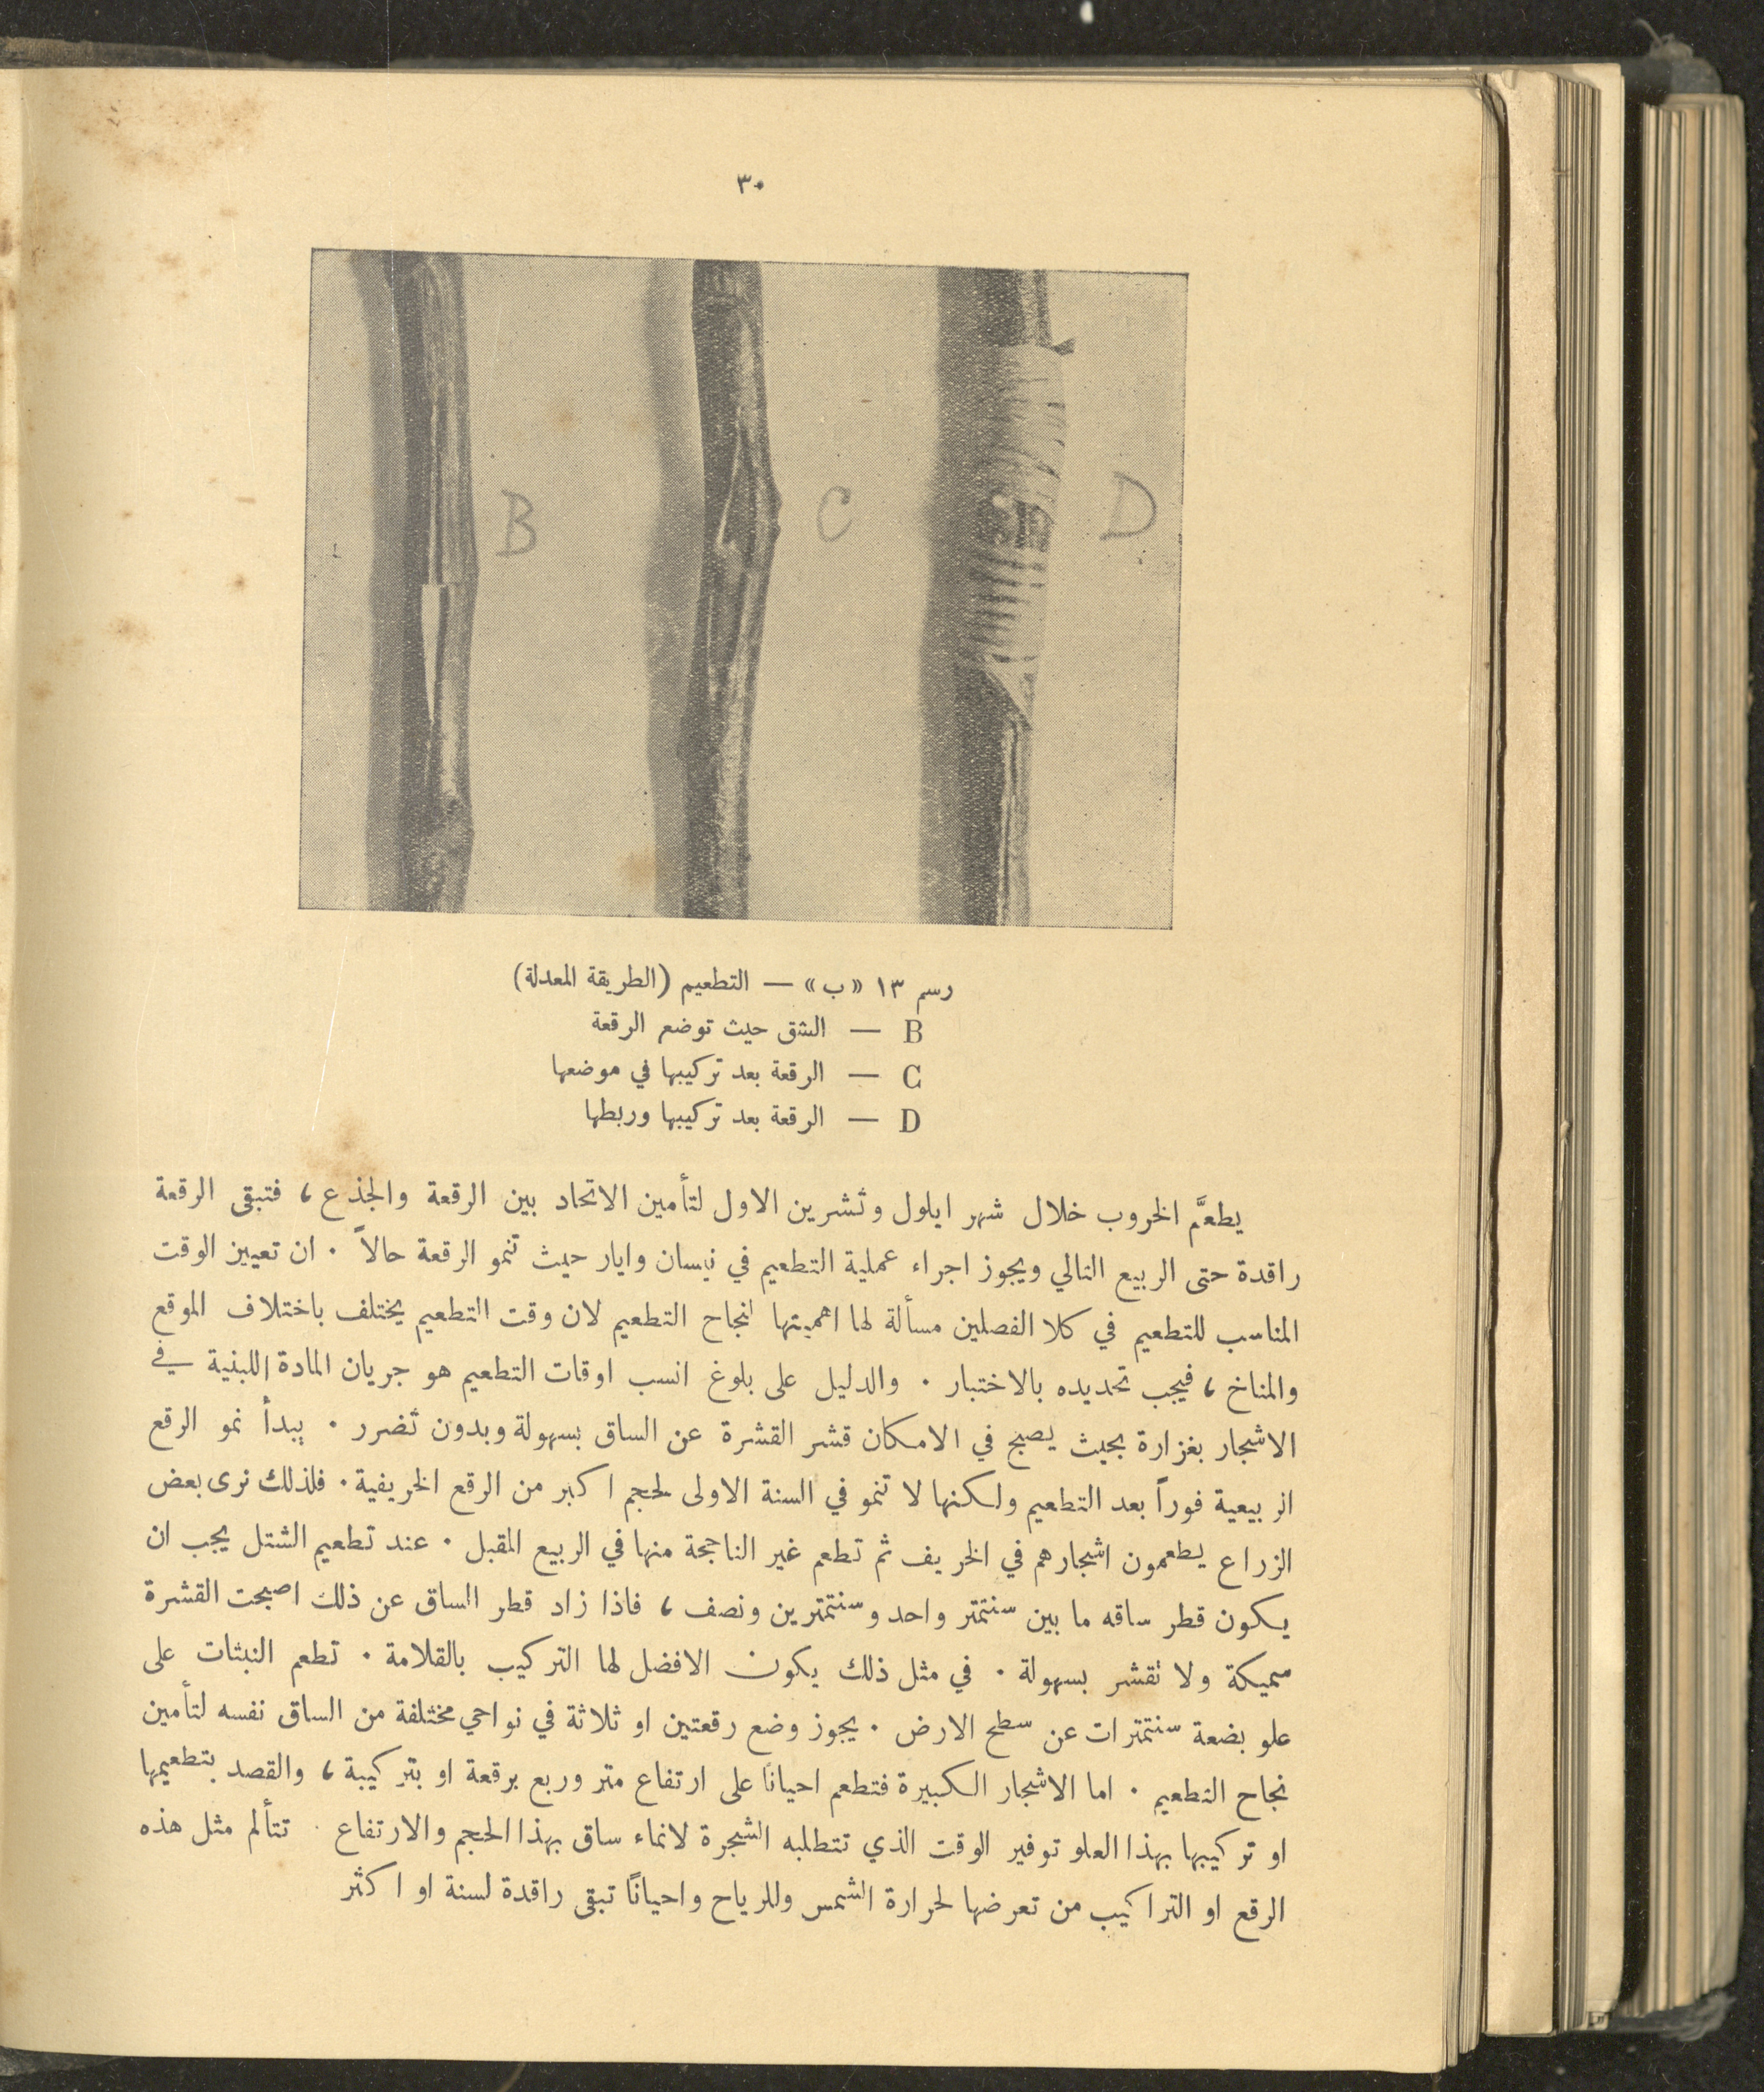 ٣٠
B C D
رسم ١٣ «ب» — التطعيم (الطريقة المعدلة)
B — الشق حيث توضع الرقعة
C — الرقعة بعد تركيبها في موضعها
D — الرقعة بعد تركيبها وربطها
يطعَّم الخروب خلال شهر ايلول وتشرين الاول لتأمين الاتحاد بين الرقعة والجذع ، فتبقى الرقعة
راقدة حتى الربيع التالي ويجوز اجراء عملية التطعيم في نيسان وايار حيث تنمو الرقعة حالاً . ان تعيين الوقت
المناسب للتطعيم في كلا الفصلين مسألة لها اهميتها لنجاح التطعيم لان وقت التطعيم يختلف باختلاف الموقع
والمناخ ، فيجب تحديده بالاختبار . والدليل على بلوغ انسب اوقات التطعيم هو جريان المادة اللبنية في
الاشجار بغزارة بحيث يصبح في الامكان قشر القشرة عن الساق بسهولة وبدون تضرر . يبدأ نمو الرقع
الربيعية فوراً بعد التطعيم ولكنها لا تنمو في السنة الاولى لحجم اكبر من الرقع الخريفية . فلذلك نرى بعض
الزراع يطعمون اشجارهم في الخريف ثم تطعم غير الناجحة منها في الربيع المقبل . عند تطعيم الشتل يجب ان
يكون قطر ساقه ما بين سنتمتر واحد وسنتمترين ونصف ، فاذا زاد قطر الساق عن ذلك اصبحت القشرة
سميكة ولا تقشر بسهولة . في مثل ذلك يكون الافضل لها التركيب بالقلامة . تطعم النبتات على
علو بضعة سنتمترات عن سطح الارض . يجوز وضع رقعتين او ثلاثة في نواحي مختلفة من الساق نفسه لتأمين
نجاح التطعيم . اما الاشجار الكبيرة فتطعم احيانا على ارتفاع متر وربع برقعة او بتركيبة ، والقصد بتطعيمها
او تركيبها بهذا العلو توفير الوقت الذي تتطلبه الشجرة لانماء ساق بهذا الحجم والارتفاع . تتألم مثل هذه
الرقع او التراكيب من تعرضها لحرارة الشمس وللرياح واحيانًا تبقى راقدة لسنة او اكثر